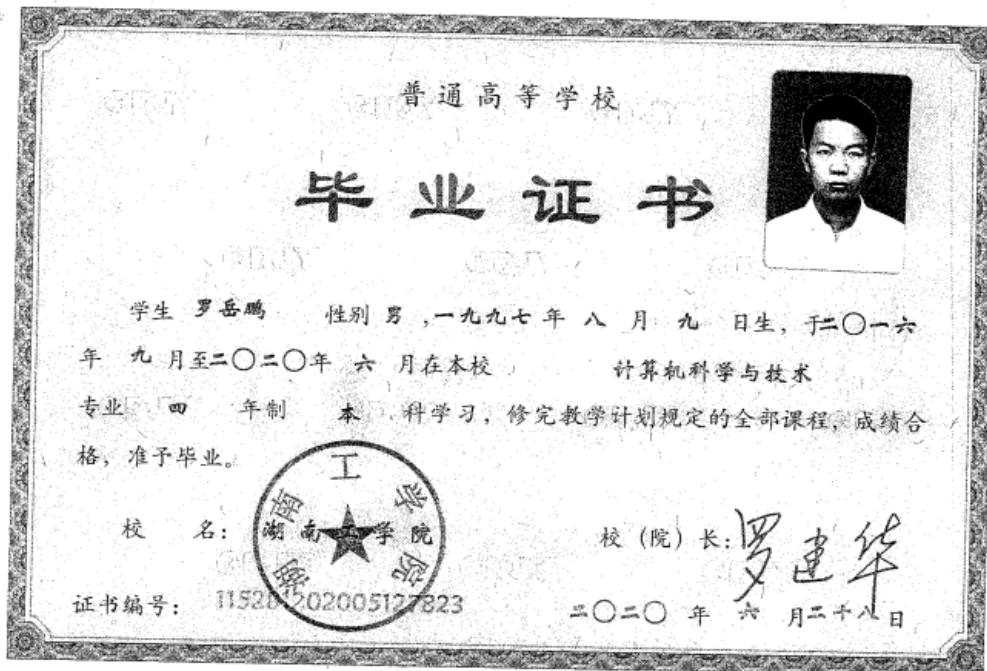 普通高等学校
毕业证书
学生 罗岳鹏 性别 男 ,一九九七 年 八 月 九 日生, 于二〇一六
年 九 月至二〇二〇年 六 月在本校 计算机科学与技术
专业 四 年制 本 科学习, 修完教学计划规定的全部课程, 成绩合
格, 准予毕业。
湖南工学院
校 名: 湖南工学院
校(院)长: 罗建华
证书编号: 115281202005127823
二〇二〇 年 六 月二十八日